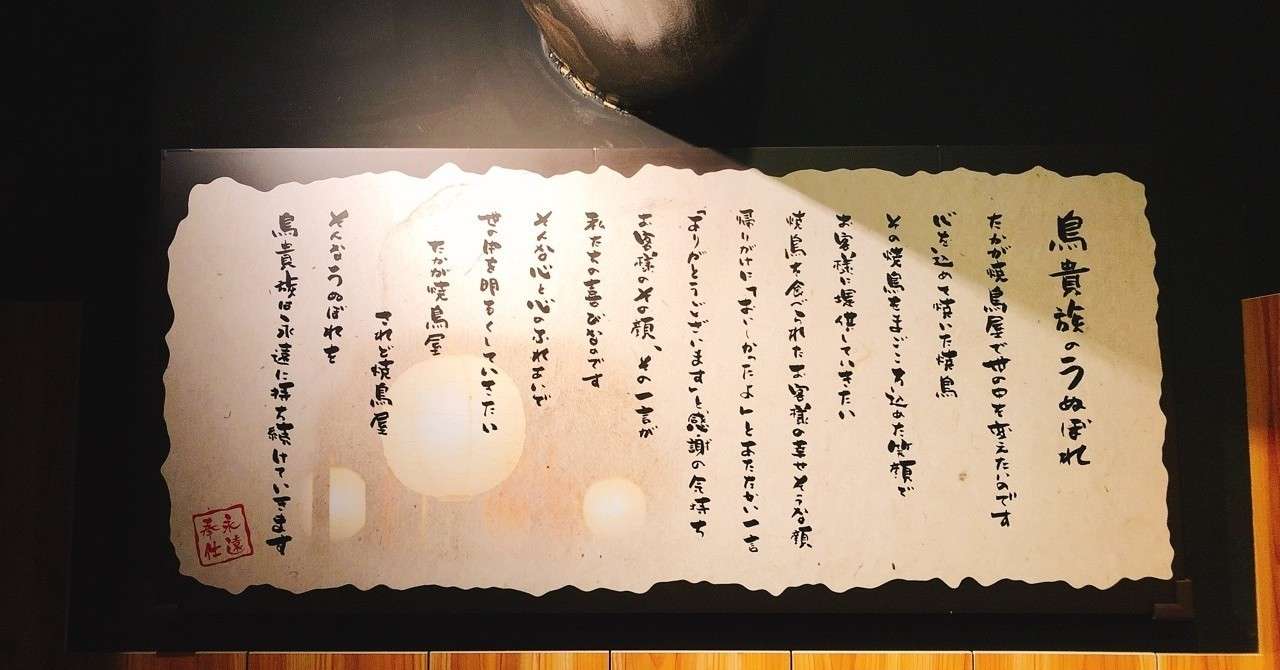 鳥貴族のうぬぼれ
たかが焼鳥屋で世の中を変えたいのです
心を込めて焼いた焼鳥
その焼鳥をまごころ込めた笑顔で
お客様に提供していきたい
焼鳥を食べられたお客様の幸せそうな顔
帰りがけに「おいしかったよ」とあたたかい一言
「ありがとうございます」と感謝の気持ち
お客様のその顔、その一言が
私たちの喜びなのです
そんな心と心のふれあいで
世の中を明るくしていきたい
たかが焼鳥屋
されど焼鳥屋
そんなうぬぼれを
鳥貴族は永遠に持ち続けていきます
永遠
奉仕